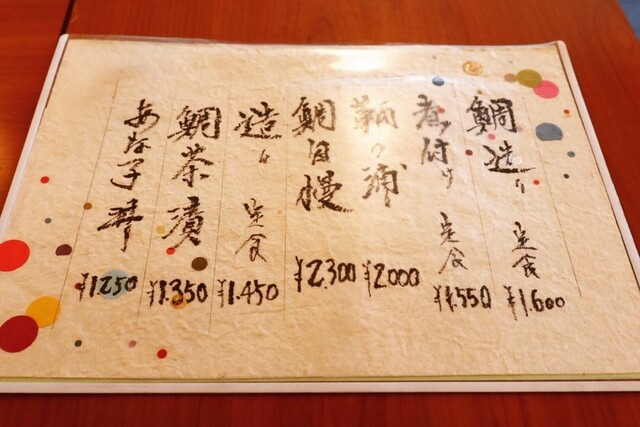 鯛造り定食 ¥1.600
煮付け定食 ¥1.550
鞆の浦 ¥2000
鯛自慢 ¥2.300
造り定食 ¥1.450
鯛茶漬 ¥1.350
あな子丼 ¥1250